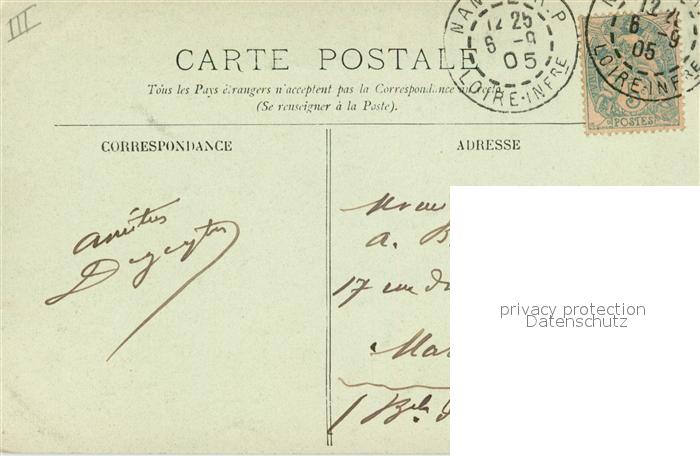 III
CARTE POSTALE
Tous les Pays étrangers n'acceptent pas la Correspondance au recto.
(Se renseigner à la Poste).
12 25
6 - 9
05
LOIRE-INFRE
6 -9
05
LOIRE-INFRE
POSTES
CORRESPONDANCE
ADRESSE
amitiés
A. B
17 rue du
privacy protection
Datenschutz